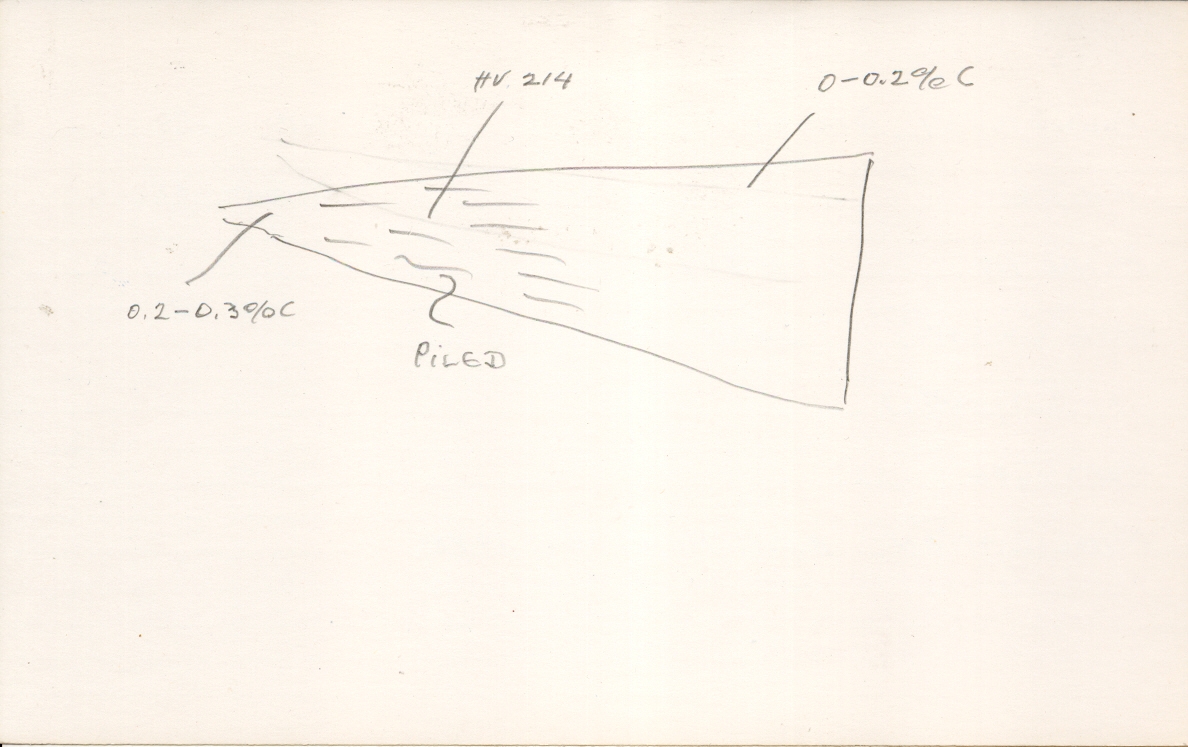 HV 214
0-0.2% C
0.2-0.3% C
PiLED